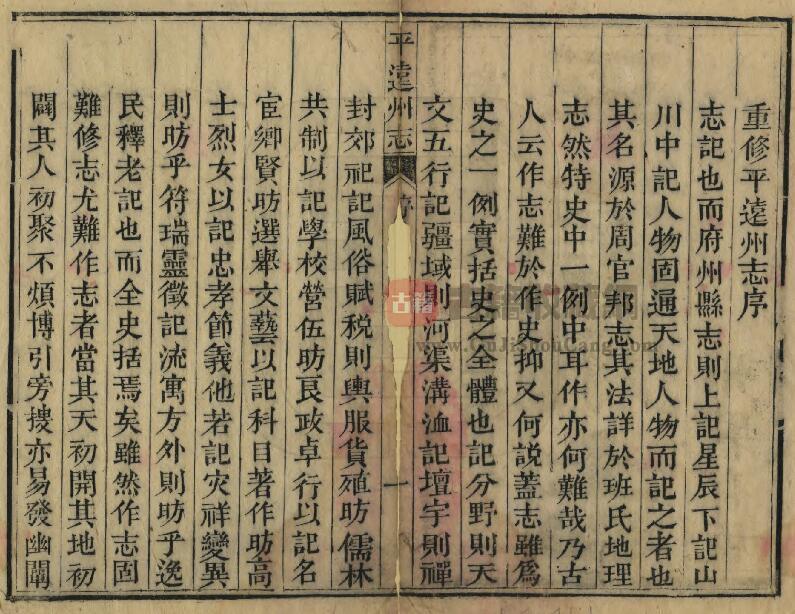 重修平遠州志序
志記也而府州縣志則上記星辰下記山
川中記人物固通天地人物而記之者也
其名源於周官邦志其法詳於班氏地理
志然特史中一例中耳作亦何難哉乃古
人云作志難於作史抑又何説蓋志雖爲
史之一例實括史之全體也記分野則天
文五行記疆域則河渠溝洫記壇宇則禪
平遠州志 序 一
封郊祀記風俗賦税則輿服貨殖昉儒林
共制以記學校營伍昉良政卓行以記名
宦鄉賢昉選舉文藝以記科目著作昉高
士烈女以記忠孝節義他若記灾祥變異
則昉乎符瑞靈徵記流寓方外則昉乎逸
民釋老記也而全史括焉矣雖然作志固
難修志尤難作志者當其天初開其地初
闢其人初聚不煩博引旁搜亦易發幽闡
古籍
www.GuJiShouCang.com